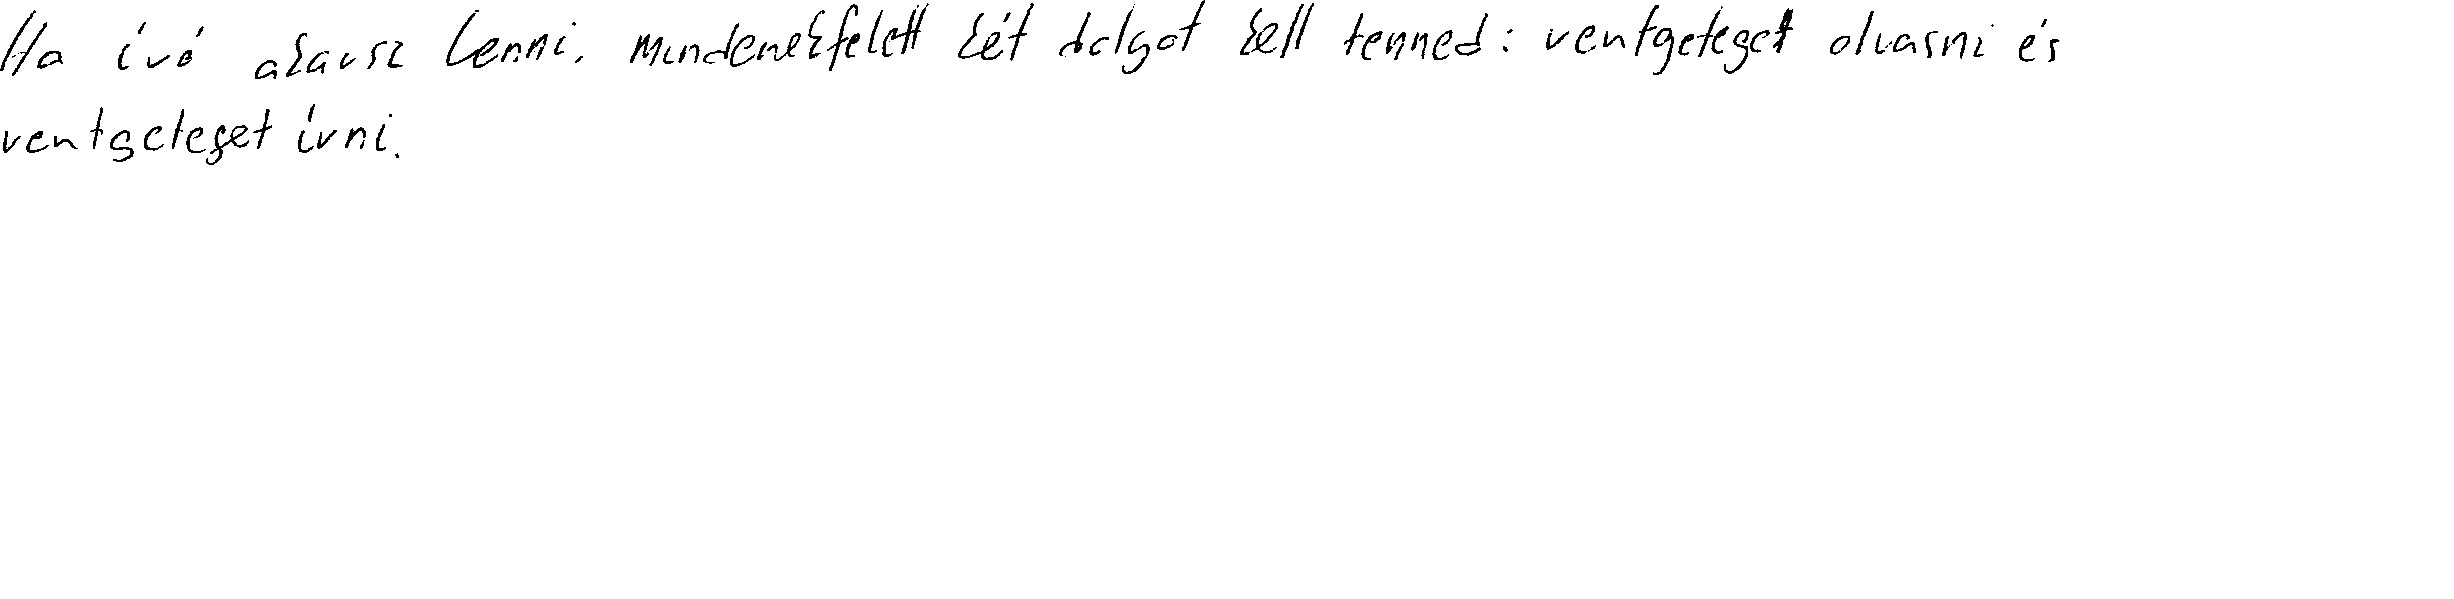 Ha író akarsz lenni, mindenekfelett két dolgot kell tenned: rentgeteget olvasni és
rentgeteget írni.